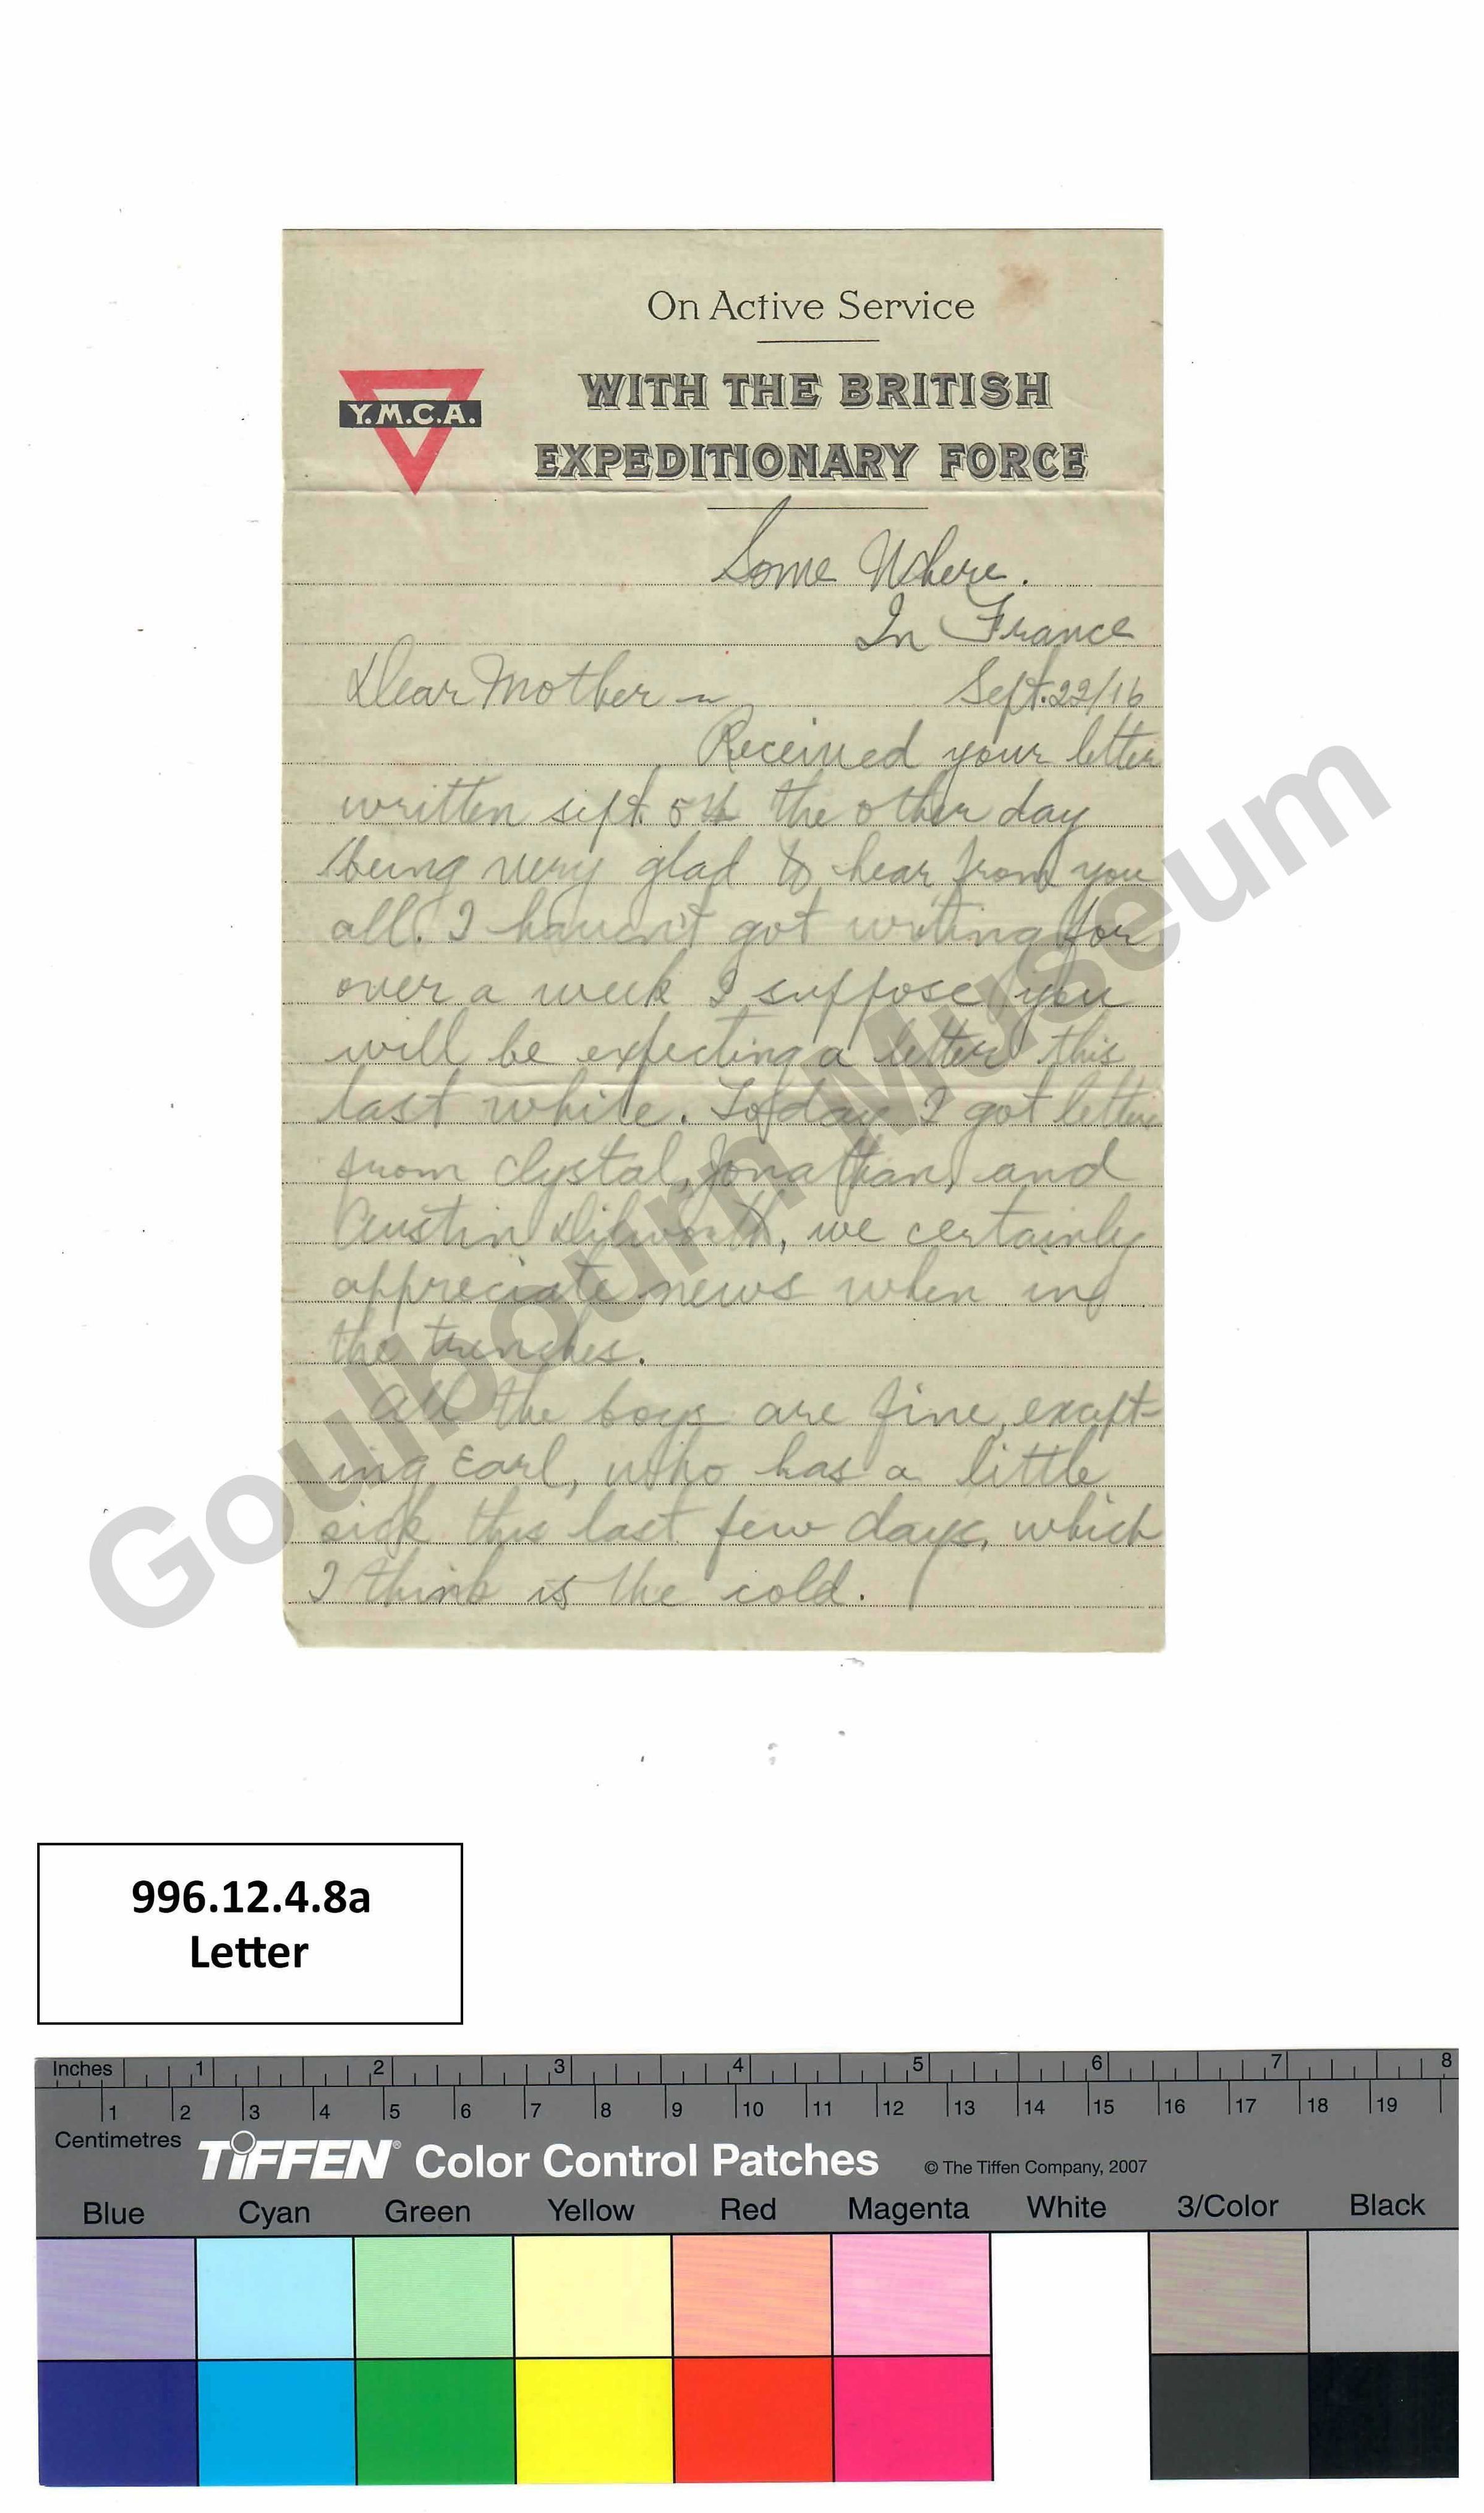 On Active Service
Y.M.C.A.
WITH THE BRITISH
EXPEDITIONARY FORCE
Some Where.
In France
Dear Mother ~ Sept. 22/16
Received your letter
written sept. 5th the other day
being very glad to hear from you
all. I haven't got writing for
over a week I suppose you
will be expecting a letter this
last while. To day I got letters
from Clystal, Jonathan, and
Austin Dilworth, we certainly
appreciate news when in
the trenches.
All the boys are fine, exapt-
ing Earl, who has a little
sick this last few days, which
I think is the cold.
Goulbourn Museum
996.12.4.8a
Letter
Inches 1 2 3 4 5 6 7 8
1 2 3 4 5 6 7 8 9 10 11 12 13 14 15 16 17 18 19
Centimetres
TIFFEN® Color Control Patches © The Tiffen Company, 2007
Blue Cyan Green Yellow Red Magenta White 3/Color Black